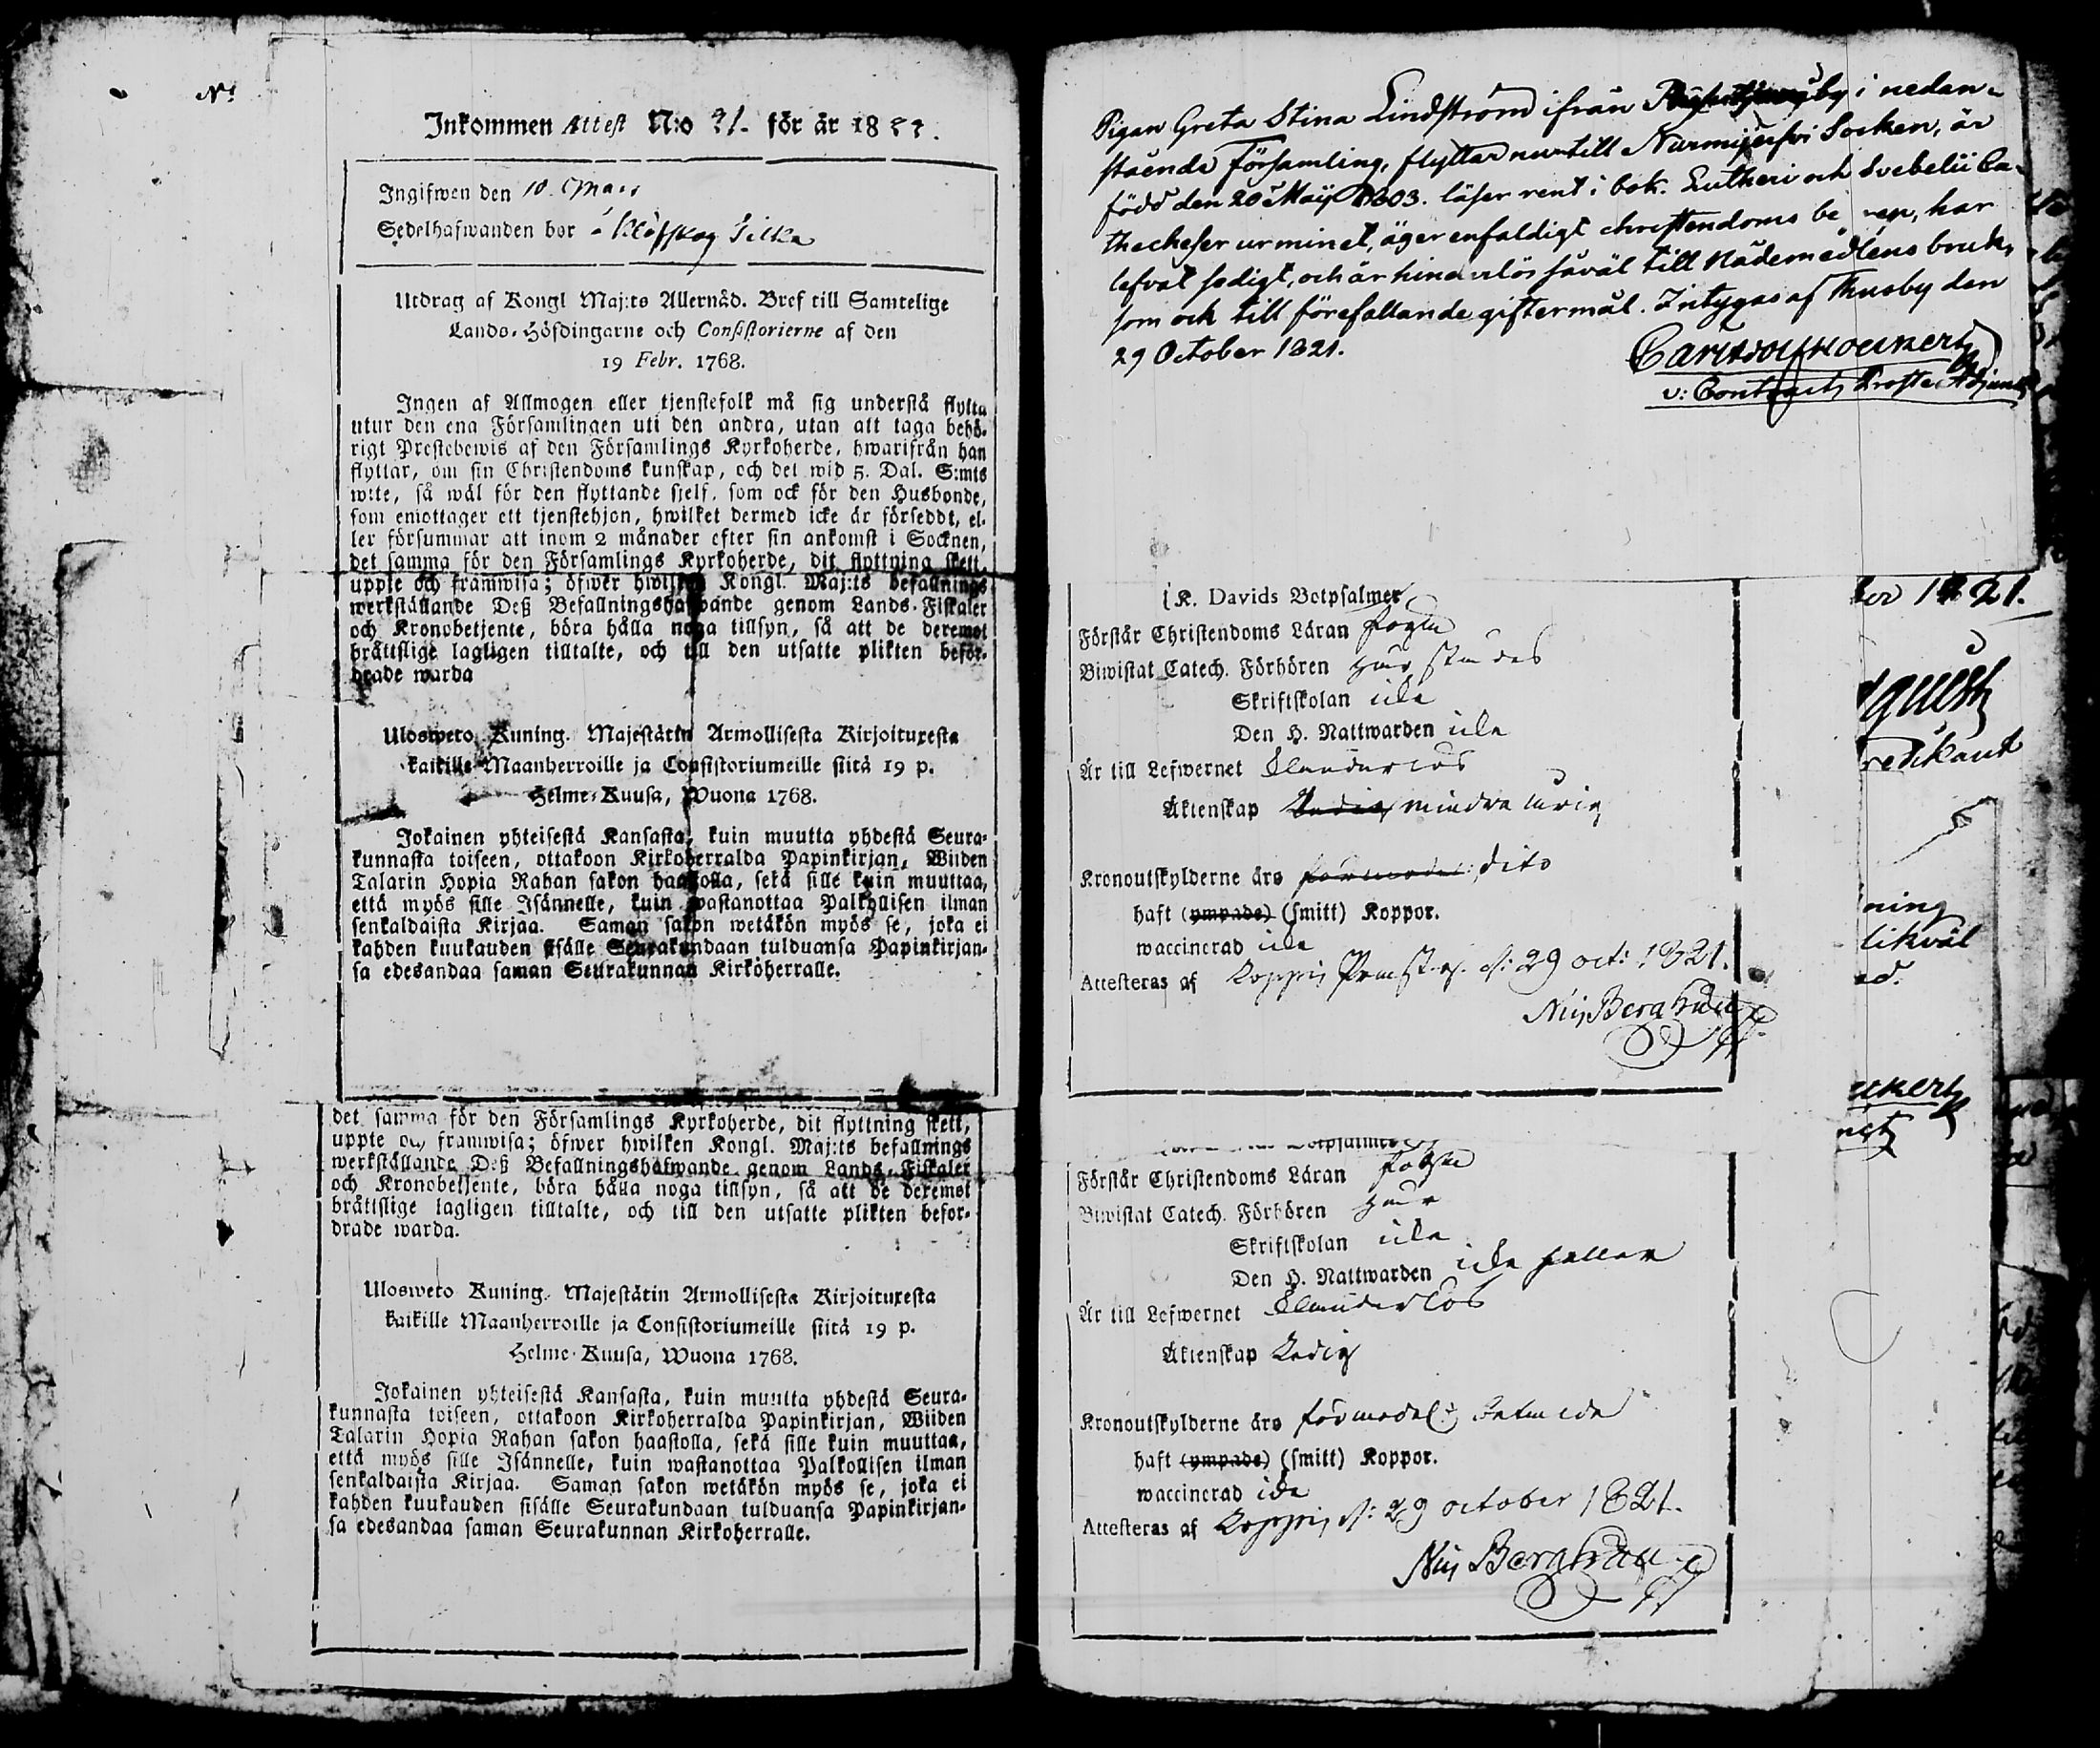 No
Inkommen Attest N:o 21. för år 18
Ingifwen den 10. Mars
Sedelhafwanden bor
Utdrag af Kongl Maj:ts Allernåd. Bref till Samtelige
Lands-Höfdingarne och Consistorierne af den
19 Febr. 1768.
Ingen af Allmogen eller tjenstefolk må sig understå flytta
utur den ena Församlingen uti den andra, utan att taga behö-
rigt Prestebewis af den Församlings Kyrkoherde, hwarifrån han
flyttar, om sin Christendoms kunskap, och det wid 5. Dal. S:mts
wite, så wäl för den flyttande sjelf, som ock för den Husbonde,
som emottager ett tjenstehjon, hwilket dermed icke är försedt, el-
ler försummar att inom 2 månader efter sin ankomst i Socknen,
det samma för den Församlings Kyrkoherde, dit flyttning skett,
uppte och framwisa; öfwer hwilken Kongl. Maj:ts befallnings
werkställande Deß Befallningshafwande genom Lands-Fiskaler
och Kronobetjente, böra hålla noga tillsyn, så att de deremot
bråttslige lagligen tilltalte, och till den utsatte plikten befor-
drade warda
Ulosweto Kuning. Majestätin Armollisesta Kirjoituxesta
kaikille Maanherroille ja Consistoriumeille siitä 19 p.
Helme-Kuusa, Wuona 1768.
Jokainen yhteisestä Kansasta, kuin muutta yhdestä Seura-
kunnasta toiseen, ottakoon Kirkoherralda Papinkirjan, Wiiden
Talarin Hopia Rahan sakon haastolla, sekä sille kuin muuttaa,
että myös sille Isännelle, kuin wastanottaa Palkollisen ilman
senkaldaista Kirjaa. Saman sakon wetäkön myös se, joka ei
kahden kuukauden sisälle Seurakundaan tulduansa Papinkirjan-
sa edesandaa saman Seurakunnan Kirköherralle.
det samma för den Församlings Kyrkoherde, dit flyttning skett,
uppte och framwisa; öfwer hwilken Kongl. Maj:ts befallnings
werkställande Deß Befallningshafwande genom Lands-Fiskaler
och Kronobetjente, böra hålla noga tillsyn, så att de deremot
bråttslige lagligen tilltalte, och till den utsatte plikten befor-
drade warda.
Ulosweto Kuning. Majestätin Armollisesta Kirjoituxesta
kaikille Maanherroille ja Consistoriumeille siitä 19 p.
Helme-Kuusa, Wuona 1768.
Jokainen yhteisestä Kansasta, kuin muutta yhdestä Seura-
kunnasta toiseen, ottakoon Kirkoherralda Papinkirjan, Wiiden
Talarin Hopia Rahan sakon haastolla, sekä sille kuin muuttaa,
että myös sille Isännelle, kuin wastanottaa Palkollisen ilman
senkaldaista Kirjaa. Saman sakon wetäkön myös se, joka ei
kahden kuukauden sisälle Seurakundaan tulduansa Papinkirjan-
sa edesandaa saman Seurakunnan Kirkoherralle.
Pigan Greta Stina Lindström ifrån i nedan-
stående Församling, flyttar nu till Nurmijerfvi Socken, är
född den 20 Maij 1803. läser rent i bok. Lutheri och Svebelii Ca-
thecheser ur minet, äger enfaldigt christendoms be rep, har
lefvat sedigt, och är hinderlös såväl till Nådemedlens bruk,
som ock till förefallande giftermål. Intygas af Thusby den
29 October 1821.
v: Contracts Prosts Adjunct
i K. Davids Botpsalmer
Förstår Christendoms Läran
Biwistat Catech. Förhören
Skriftskolan icke
Den H. Nattwarden icke
Är till Lefwernet Klanderlös
Äktenskap Ledig mindre
Kronoutskylderne äro dito
haft (ympade) (smitt) Koppor.
waccinerad icke
Attesteras af d: 29 oct: 1821.
Förstår Christendoms Läran
Biwistat Catech. Förhören
Skriftskolan icke
Den H. Nattwarden icke heller
Är till Lefwernet Klanderlös
Äktenskap Ledig
Kronoutskylderne äro
haft (ympade) (smitt) Koppor.
waccinerad icke
Attesteras af d: 29 october 1821.
ber 1821.
redikant
ning
likväl
ed.